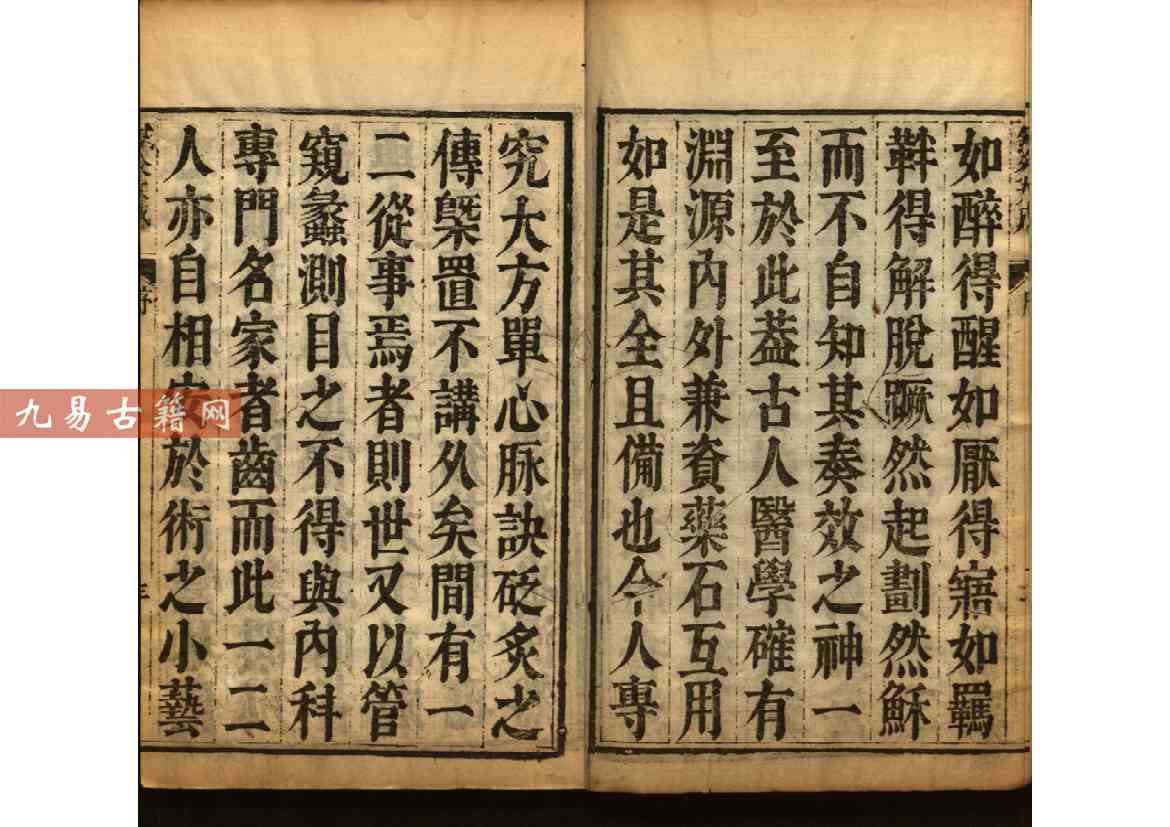 如醉得醒如厭得寤如羈
靽得解脫蹶然起劃然穌
而不自知其奏效之神一
至於此葢古人醫學確有
淵源內外兼資藥石互用
如是其全且備也今人專
究大方單心脉訣砭炙之
傳槩置不講久矣間有一
二從事焉者則世又以管
窺蠡測目之不得與內科
專門名家者齒而此一二
人亦自相安於術之小藝
序
九易古籍网